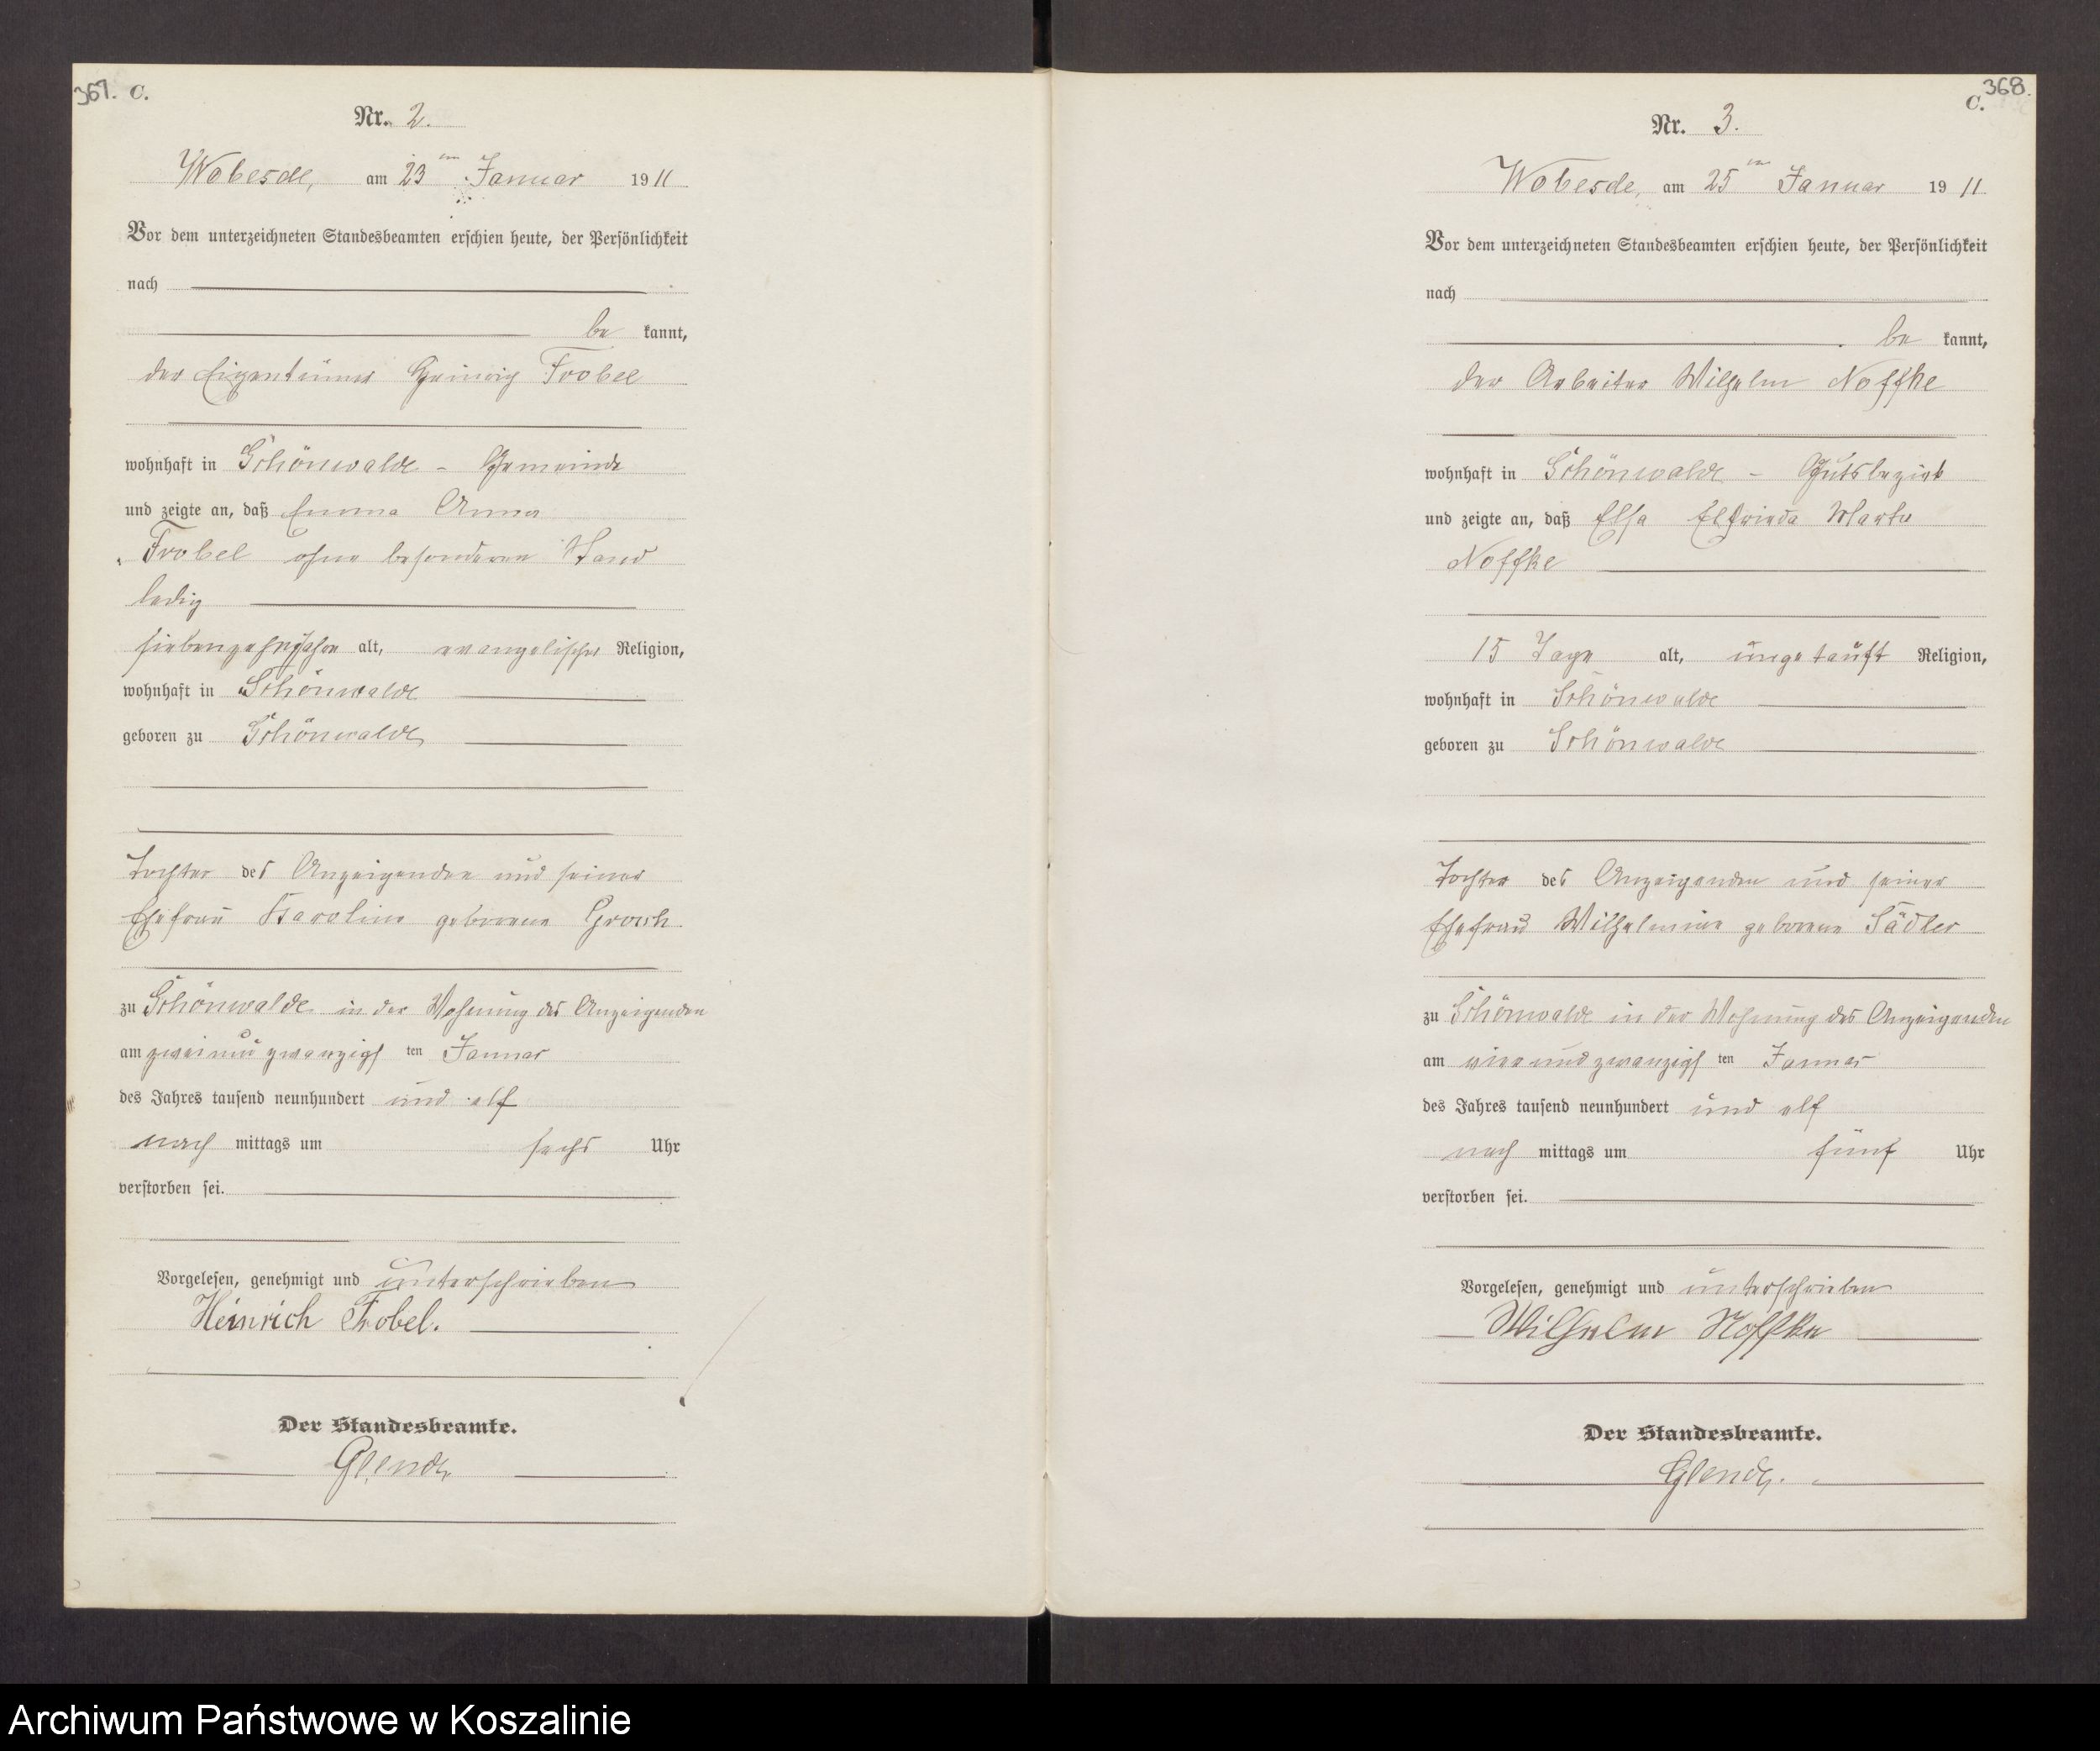 367. C.
Nr. 2.
Wobesde, am 23ten Januar 1911
Vor dem unterzeichneten Standesbeamten erschien heute, der Persönlichkeit
nach
be kannt,
der Eigentümer Heinrich Frobel
wohnhaft in Schönwalde - Gemeinde
und zeigte an, daß Emma Anna
Frobel ohne besonderen Stand
ledig
siebenzehn Jahre alt, evangelischer Religion,
wohnhaft in Schönwalde
geboren zu Schönwalde
Tochter des Anzeigenden und seiner
Ehefrau Karoline geborene
zu Schönwalde in der Wohnung des Anzeigenden
am zweiundzwanzigsten Januar
des Jahres tausend neunhundert und elf
nach mittags um sechs Uhr
verstorben sei.
Vorgelesen, genehmigt und unterschrieben
Heinrich Frobel.
Der Standesbeamte.
368.
C.
Nr. 3.
Wobesde, am 25ten Januar 1911
Vor dem unterzeichneten Standesbeamten erschien heute, der Persönlichkeit
nach
be kannt,
der Arbeiter Wilhelm Noffke
wohnhaft in Schönwalde - Gutsbezirk
und zeigte an, daß Elsa Elfrieda Marta
Noffke
15 Tage alt, ungetauft Religion,
wohnhaft in Schönwalde
geboren zu Schönwalde
Tochter des Anzeigenden und seiner
Ehefrau Wilhelmine geborene Sädler
zu Schönwalde in der Wohnung des Anzeigenden
am vierundzwanzigsten Januar
des Jahres tausend neunhundert und elf
nach mittags um fünf Uhr
verstorben sei.
Vorgelesen, genehmigt und unterschrieben
Wilhelm Noffke
Der Standesbeamte.
Archiwum Państwowe w Koszalinie